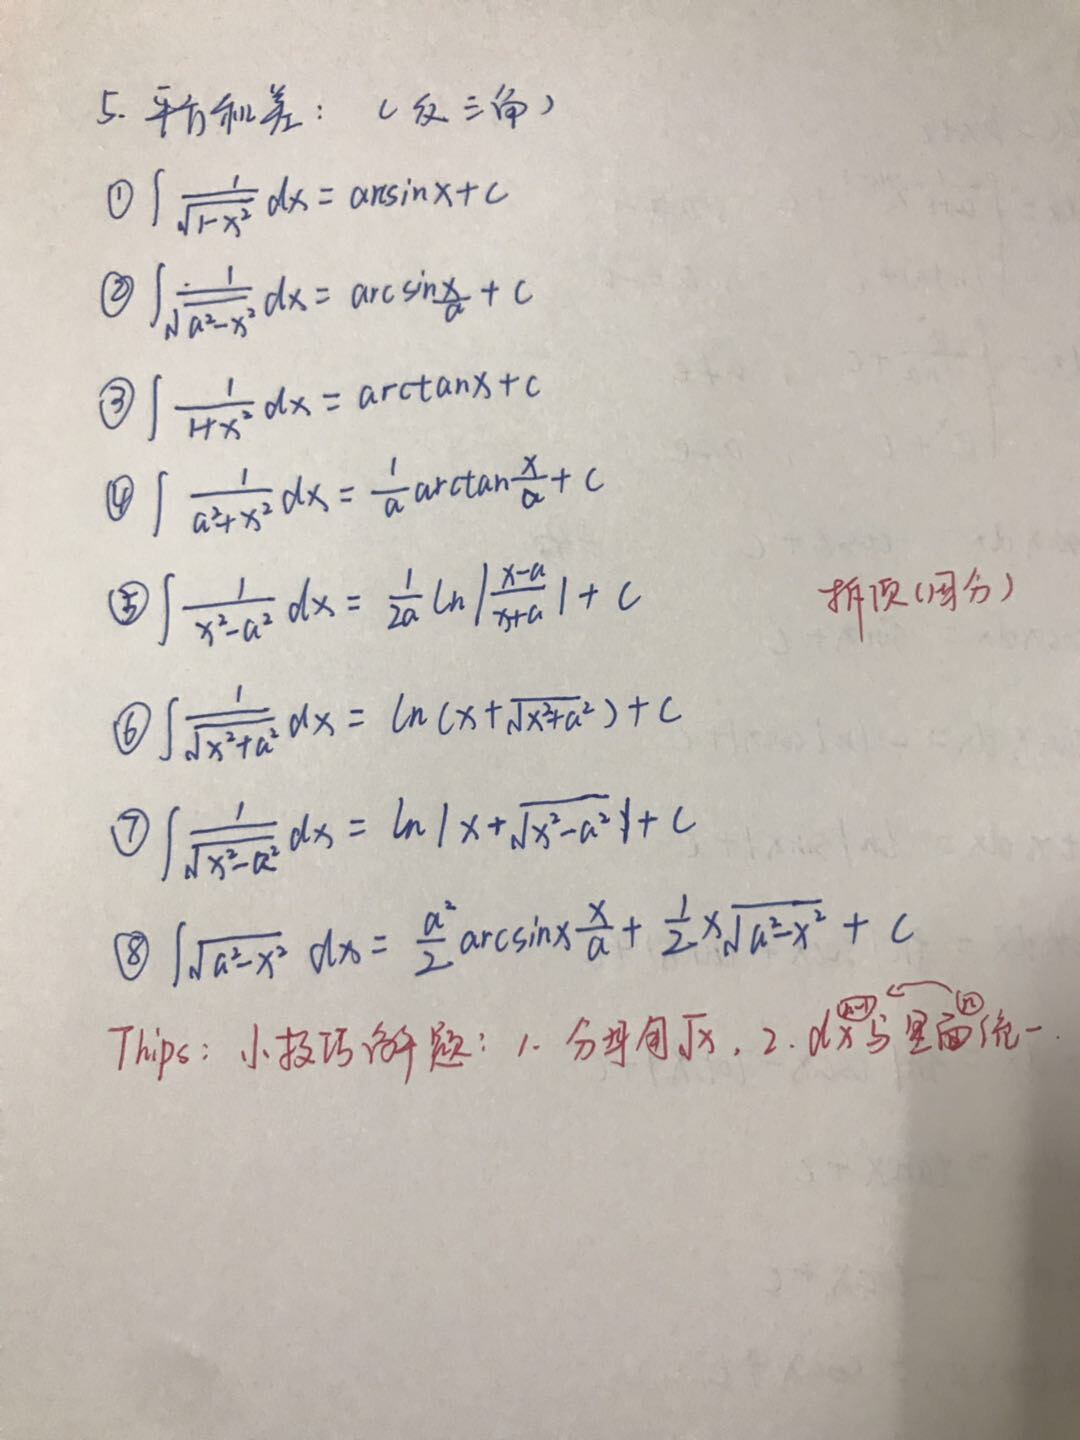 5. 平方和差: (反三角)
① ∫ 1/√(1-x²) dx = arcsinx + C
② ∫ 1/√(a²-x²) dx = arcsin x/a + C
③ ∫ 1/(1+x²) dx = arctanx + C
④ ∫ 1/(a²+x²) dx = 1/a arctan x/a + C
⑤ ∫ 1/(x²-a²) dx = 1/2a ln|(x-a)/(x+a)| + C 拆项(因分)
⑥ ∫ 1/√(x²+a²) dx = ln(x+√(x²+a²)) + C
⑦ ∫ 1/√(x²-a²) dx = ln|x+√(x²-a²)| + C
⑧ ∫√(a²-x²) dx = a²/2 arcsinx x/a + 1/2 x√(a²-x²) + C
(n-1) ← (n)
Thips: 小技巧解题: 1. 分母有√x, 2. dx与里面统一.